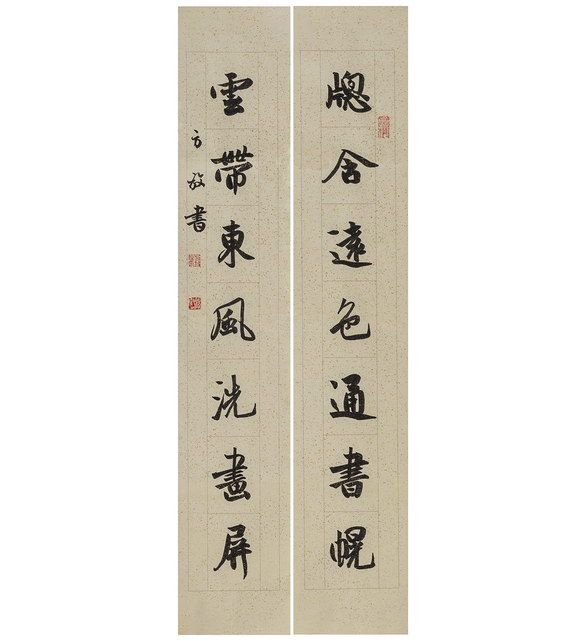 牕含遠色通書幌
雲帶東風洗畫屏
方放書